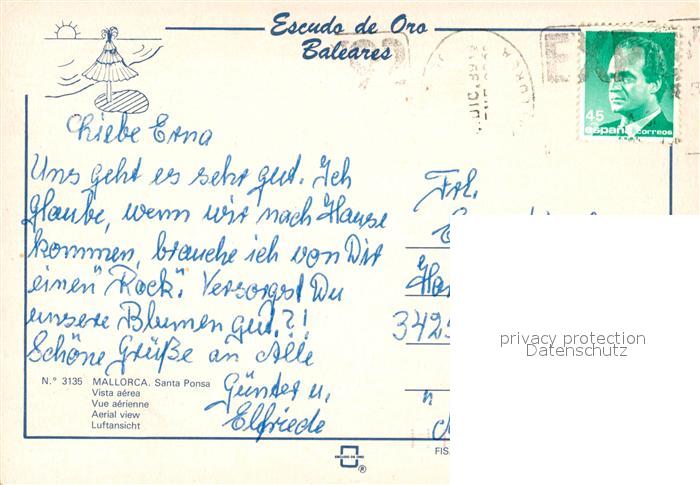 Escudo de Oro
Baleares
45
españa correos
Liebe Erna
Uns geht es sehr gut. Ich
glaube, wenn wir nach Hause
kommen, brauche ich von Dir
einen "Rock". Versorgst Du
unsere Blumen gut?!
Schöne Grüße an Alle
Günter u.
Elfriede
Frl.
3425
privacy protection
Datenschutz
N.° 3135 MALLORCA. Santa Ponsa
Vista aérea
Vue aérienne
Aerial view
Luftansicht
ESCUDO DE ORO
®
FIS